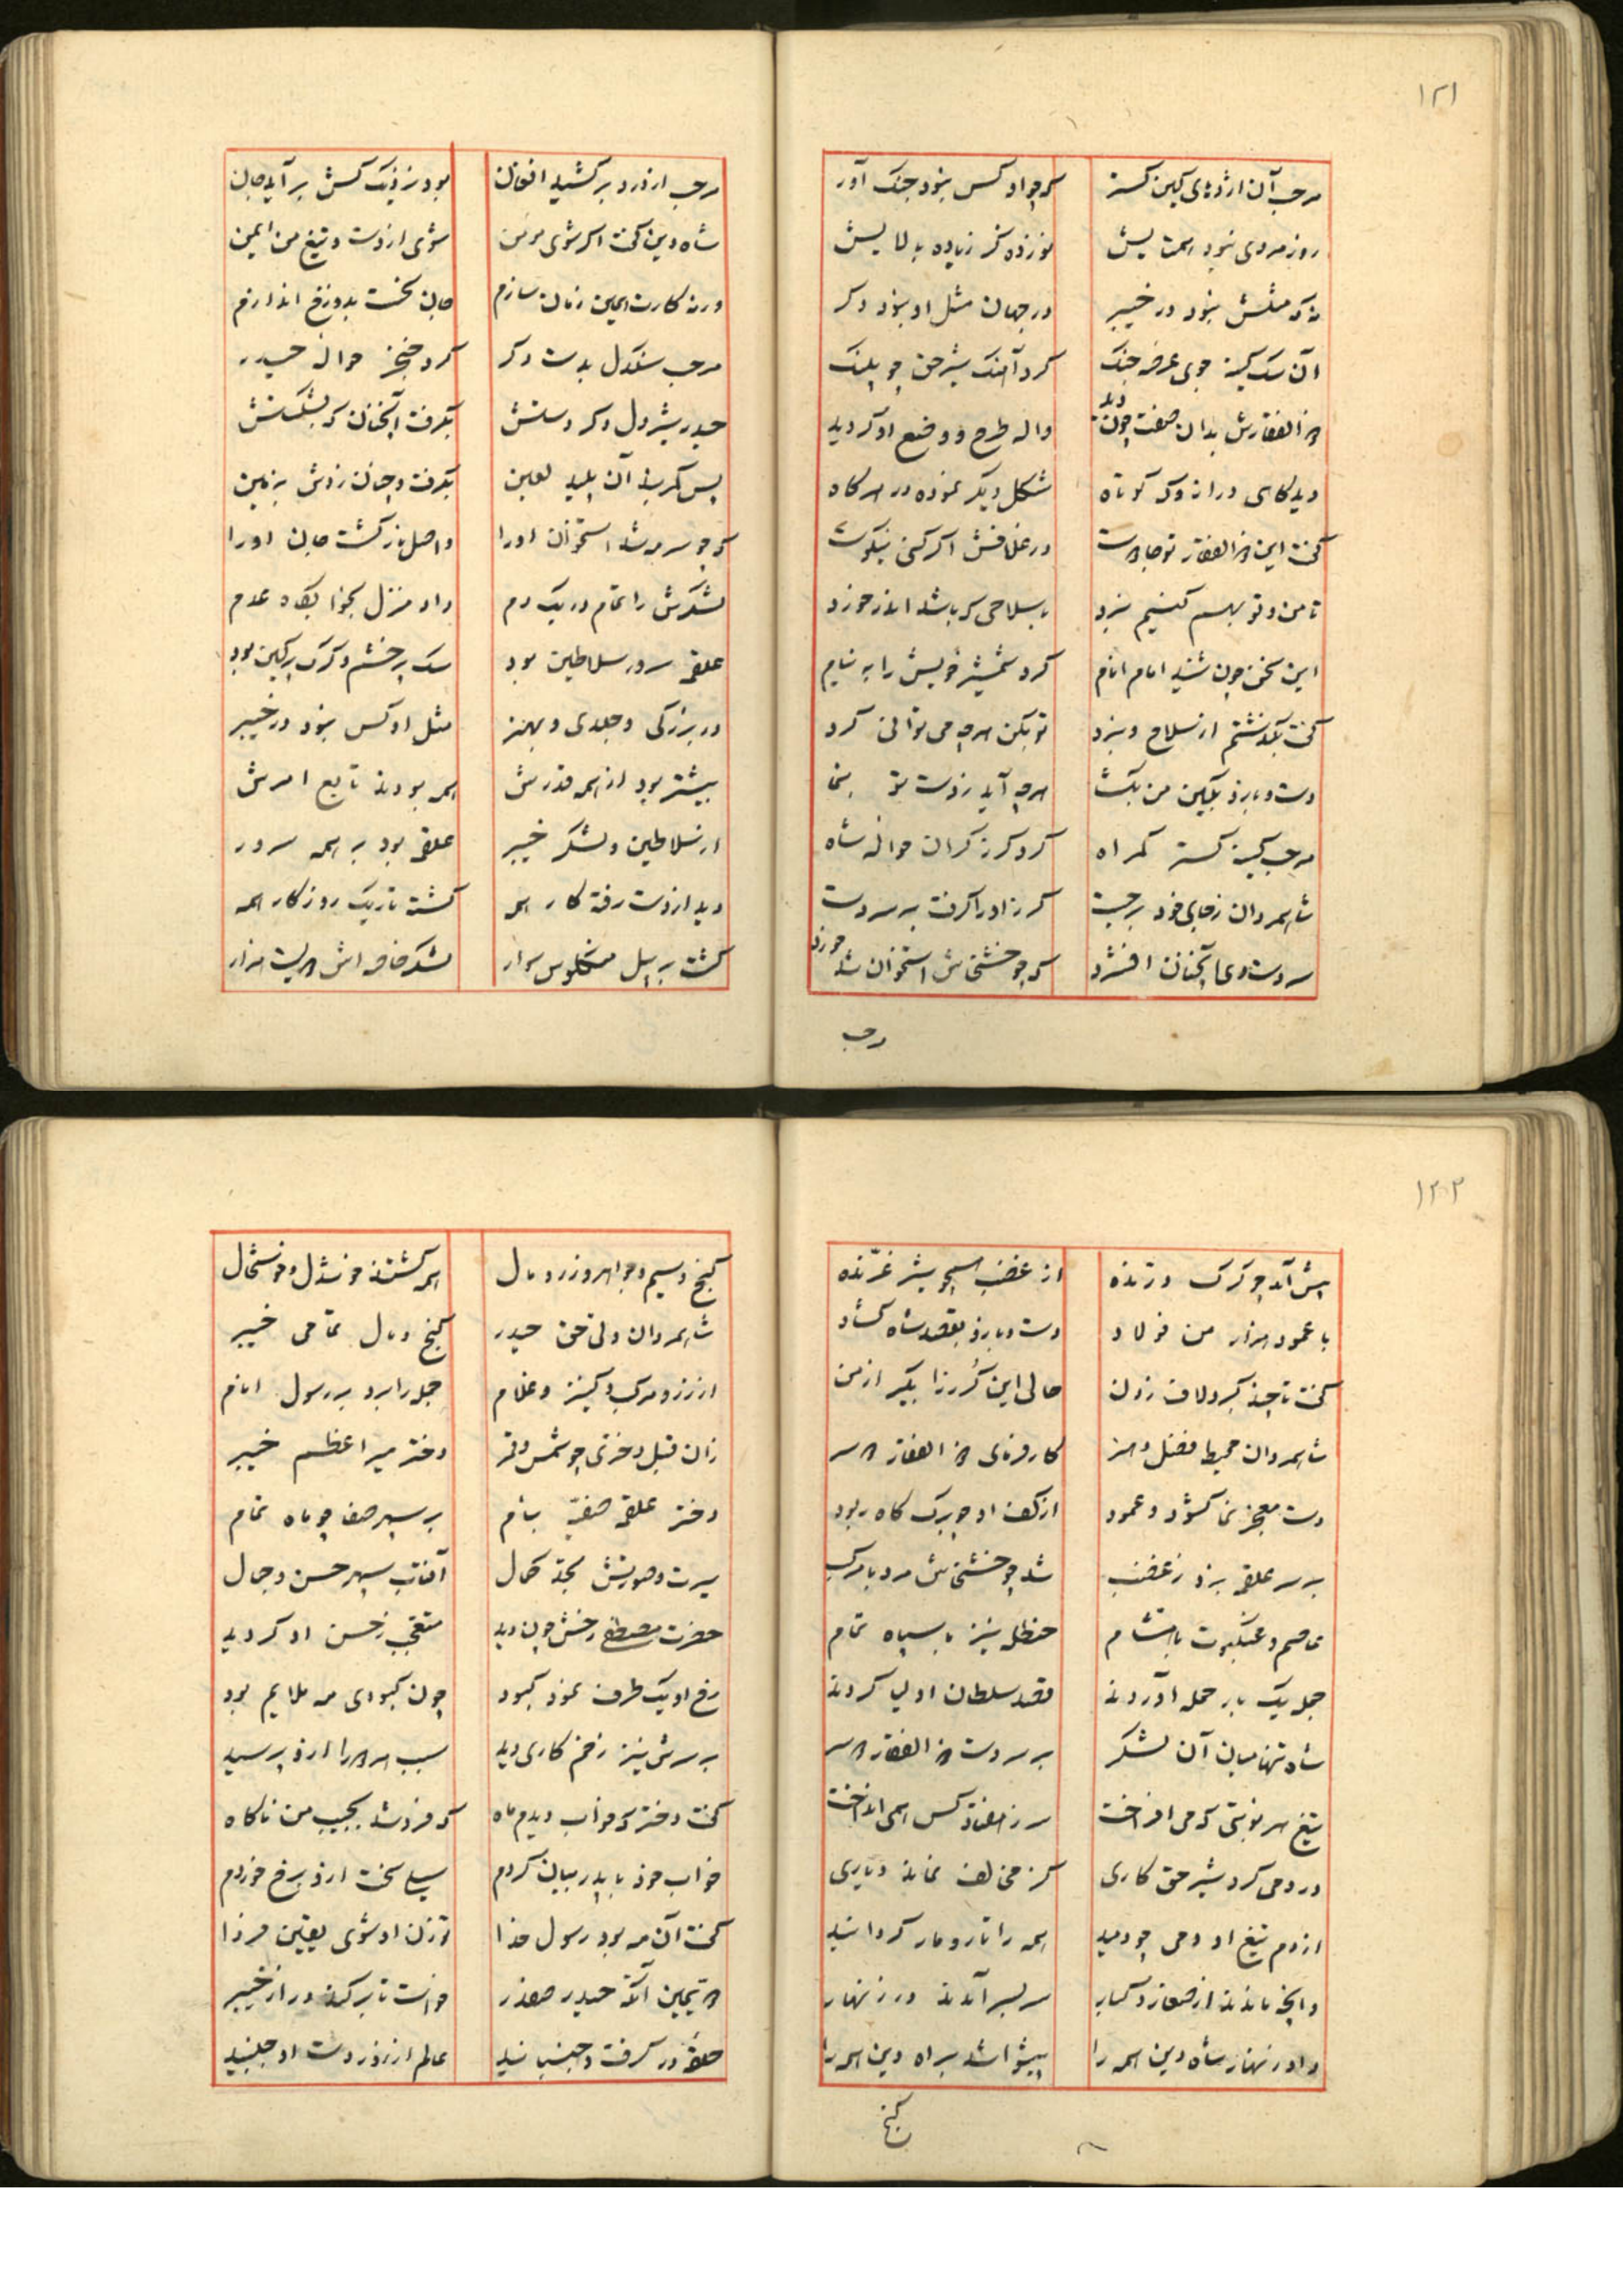 ۱۲۱
مرحب آن اژدهای کین گستر که چو او کس نبود جنک آور
روز مردی نبود همتایش خورده کز زیاده بالایش
نه که مثلش نبود در خیبر در جهان مثل او نبود دکر
آن سک کینه جوی عرصه جنک کرد آهنک شیر حق چو پلنک
ذوالفقارش بدان صفت چون دید واله طرح و وضع او کردید
دید کاهی دراز و که کوتاه شکل دیکر نموده در هر کاه
کفت این ذوالفقار تو جادوست در غلافش اکر کنی نیکوست
تا من و تو بهم کنیم نبرد با سلاحی که باشد اندر خورد
این سخن چون شنید امام انام کرد شمشیر خویش را به نیام
کفت بکذشتم از سلاح و نبرد تو بکن هرچه می توانی کرد
دست و بازو بکین من بکشا هرچه آید ز دست تو بنما
مرحب کینه کستر کمراه کرد کرز کران حواله شاه
شاه مردان ز جای خود برجست کرز او را کرفت بر سر دست
سر دست وی آنچنان افشرد که چو خشخاش استخوان شد خورد
مرحب
مرحب از درد برکشید افغان بود نزدیک کش برآید جان
شاه دین کفت اکر شوی مومن شوی از دست و تیغ من ایمن
ورنه کارت همین زمان سازم جان نحست بدوزخ اندازم
مرحب سنکدل بدست دکر کرد خنجر حواله حیدر
حیدر شیردل دکر دستش بکرفت آنچنان که بشکستش
پس کمربند آن پلید لعین بکرفت و چنان زدش بزمین
که چو سرمه شد استخوان او را واصل نار کشت جان او را
لشکرش را تمام در یک دم داد منزل بخوابکاه عدم
علقمه سرور سلاطین بود سک پر خشم و کرک پرکین بود
در بزرکی و جلدی و بهنر مثل او کس نبود در خیبر
بیشتر بود از همه قدرش همه بودند تابع امرش
از سلاطین و لشکر خیبر علقمه بود بر همه سرور
دید از دست رفته کار همه کشته تاریک روزکار همه
کشت بر پیل منکلوس سوار لشکر خاصه اش دویست هزار
۱۲۲
پیش آمد چو کرک درنده از غضب همچو شیر غرّنده
با عمود هزار من فولاد دست و بازو بقصد شاه کشاد
کفت تا چند کبر و لاف زدن حالی این کُرز را بکیر از من
شاه مردان محیط فضل و هنر کارفرمای ذوالفقار دوسر
دست معجز نما کشود و عمود از کف او چو برک کاه ربود
بر سر علقمه بزد ز غضب شد چو خشخاش مرد با مرکب
عاصم و عنکبوت با هشام حنظله نیز با سپاه تمام
جمله یک بار حمله آوردند قصد سلطان اولیا کردند
شاه تنها میان آن لشکر بر سر دست ذوالفقار دوسر
تیغ هر نوبتی که می افراخت سر ز هفتاد کس همی انداخت
درو می کرد شیر حق کاری کز مخالف نماند دیاری
از دم تیغ او دمی چو دمید همه را تار و مار کردانید
و آنچه ماندند از صغار و کبار سربسر آمدند در زنهار
داد زنهار شاه دین همه را پیشوا شد براه دین همه را
کنج
کنج و سیم و جواهر و زر و مال همه کشتند خوشدل و خوشحال
شاه مردان ولی حق حیدر کنج و مال تمامی خیبر
از زر و مرکب و کنیز و غلام جمله را برد بر رسول انام
زان قبل دختری چو شمس و قمر دختر میر اعظم خیبر
دختر علقمه صفیّه بنام بر سپهر صفا چو ماه تمام
سیرت و صورتش بحدّ کمال آفتاب سپهر حسن و جمال
حضرت مصطفی رخش چون دید متعجب ز حسن او کردید
رخ او یک طرف نمود کبود چون کبودی مه ملایم بود
بر سرش نیز زخم کاری دید سبب هر دو را ازو پرسید
کفت دختر که خواب دیدم ماه که فرو شد بجیب من ناکاه
خواب خود با پدر بیان کردم سیلی سخت ازو برخ خوردم
کفت آن مه بود رسول خدا تو زن او شوی یقین فردا
دویمین آنکه حیدر صفدر خواست تا برکند در از خیبر
حلقه در کرفت و جنبانید عالم از زور دست او جنبید